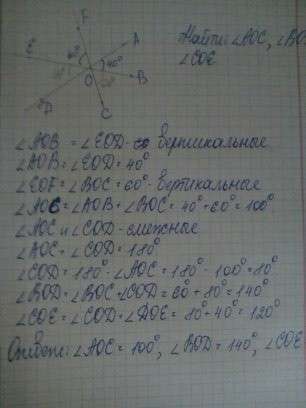 F
A
E
60°
40°
O
B
D
C
Найти: ∠AOC, ∠BO
∠COE
∠AOB = ∠EOD - вертикальные
∠AOB = ∠EOD = 40°
∠EOF = ∠BOC = 60° - вертикальные
∠AOC = ∠AOB + ∠BOC = 40° + 60° = 100°
∠AOC и ∠COD - смежные
∠AOC + ∠COD = 180°
∠COD = 180° - ∠AOC = 180° - 100° = 80°
∠BOD = ∠BOC + ∠COD = 60° + 80° = 140°
∠COE = ∠COD + ∠DOE = 80° + 40° = 120°
Ответ: ∠AOC = 100°, ∠BOD = 140°, ∠COE